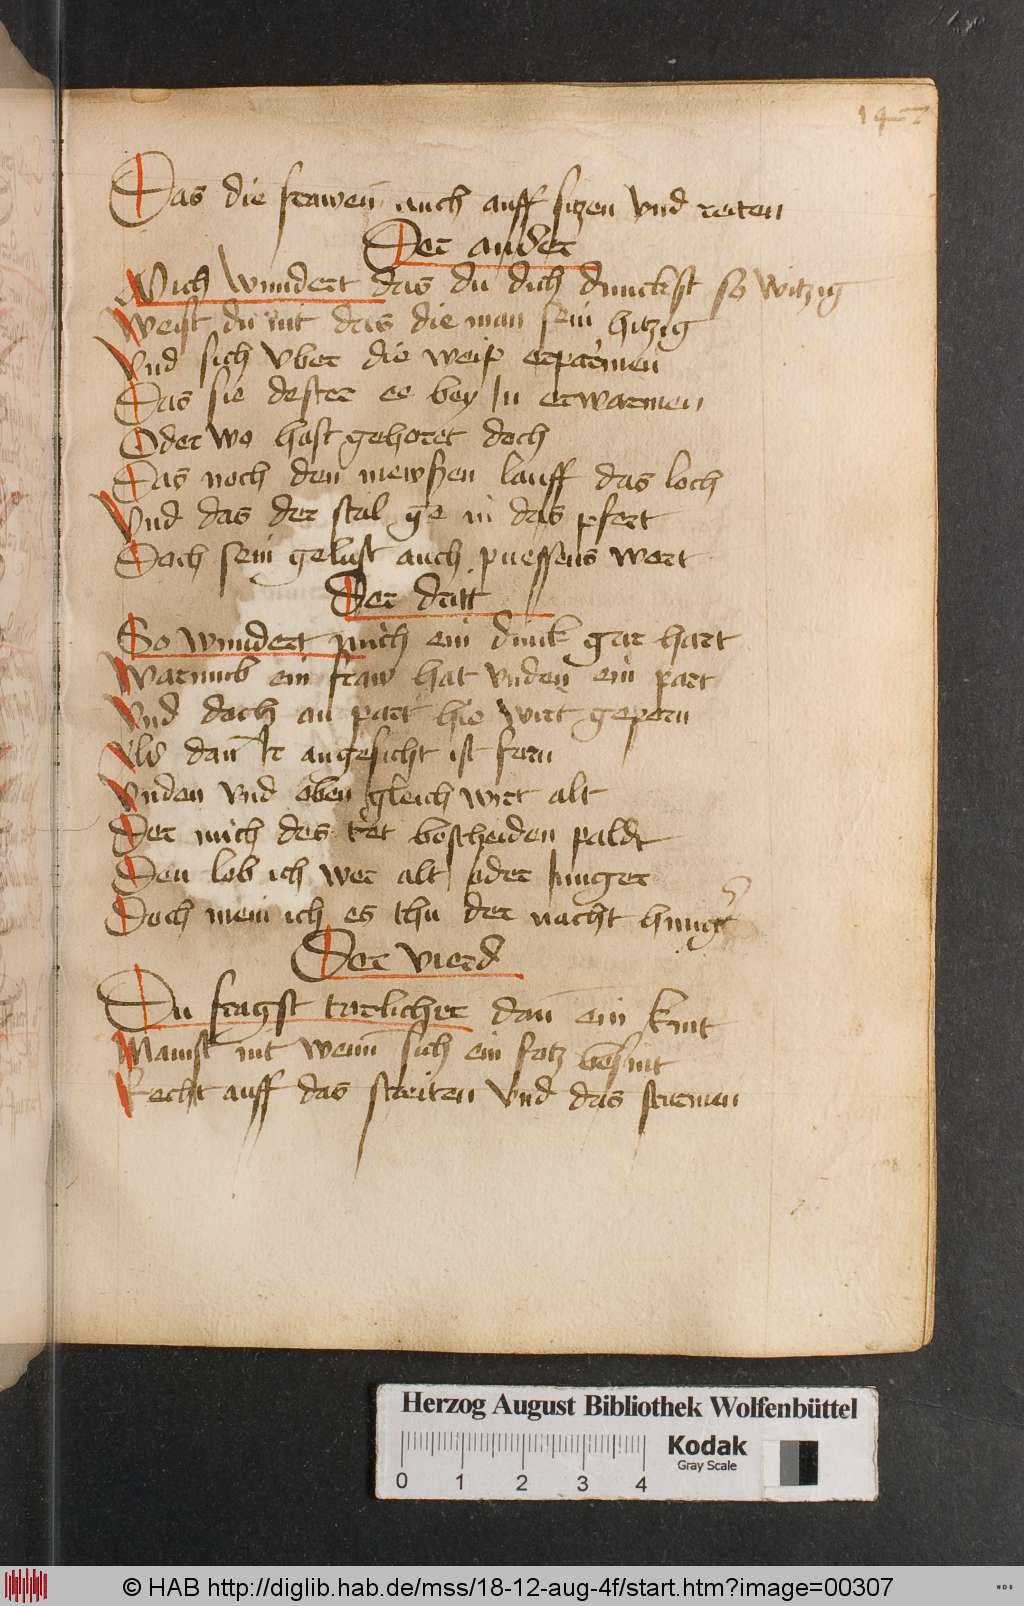 147
Das die frawen auch auff siczen vnd reiten
Der ander
Mich wundert das du dich dunckst so witzig
Weist du nit das die man sein hitzig
Vnd sich vber die weip erparmen
Das sie dester ee bey In erwarmen
Oder wo hast gehoret doch
Das noch den mewszen lauff das loch
Vnd das der stal ge in das pfert
Doch sein gelust auch puessens wert
Der dritt
So wundert mich ein dinck gar hart
Warumb ein fraw hat vnden ein part
Vnd doch an part hie wirt geporn
Als dan Ir angesicht ist forn
Vnden vnd oben gleich wirt alt
Der mich des tet bescheiden paldt
Den lob ich wer alt oder Junger
Doch mein ich es thu der nacht hunger
Der vierd
Du fragst torlicher dan ein kint
Mainst nit wenn sich ein fotz besint
Recht auff das streiten vnd das sturmen
Herzog August Bibliothek Wolfenbüttel
Kodak
Gray Scale
0 1 2 3 4
© HAB http://diglib.hab.de/mss/18-12-aug-4f/start.htm?image=00307